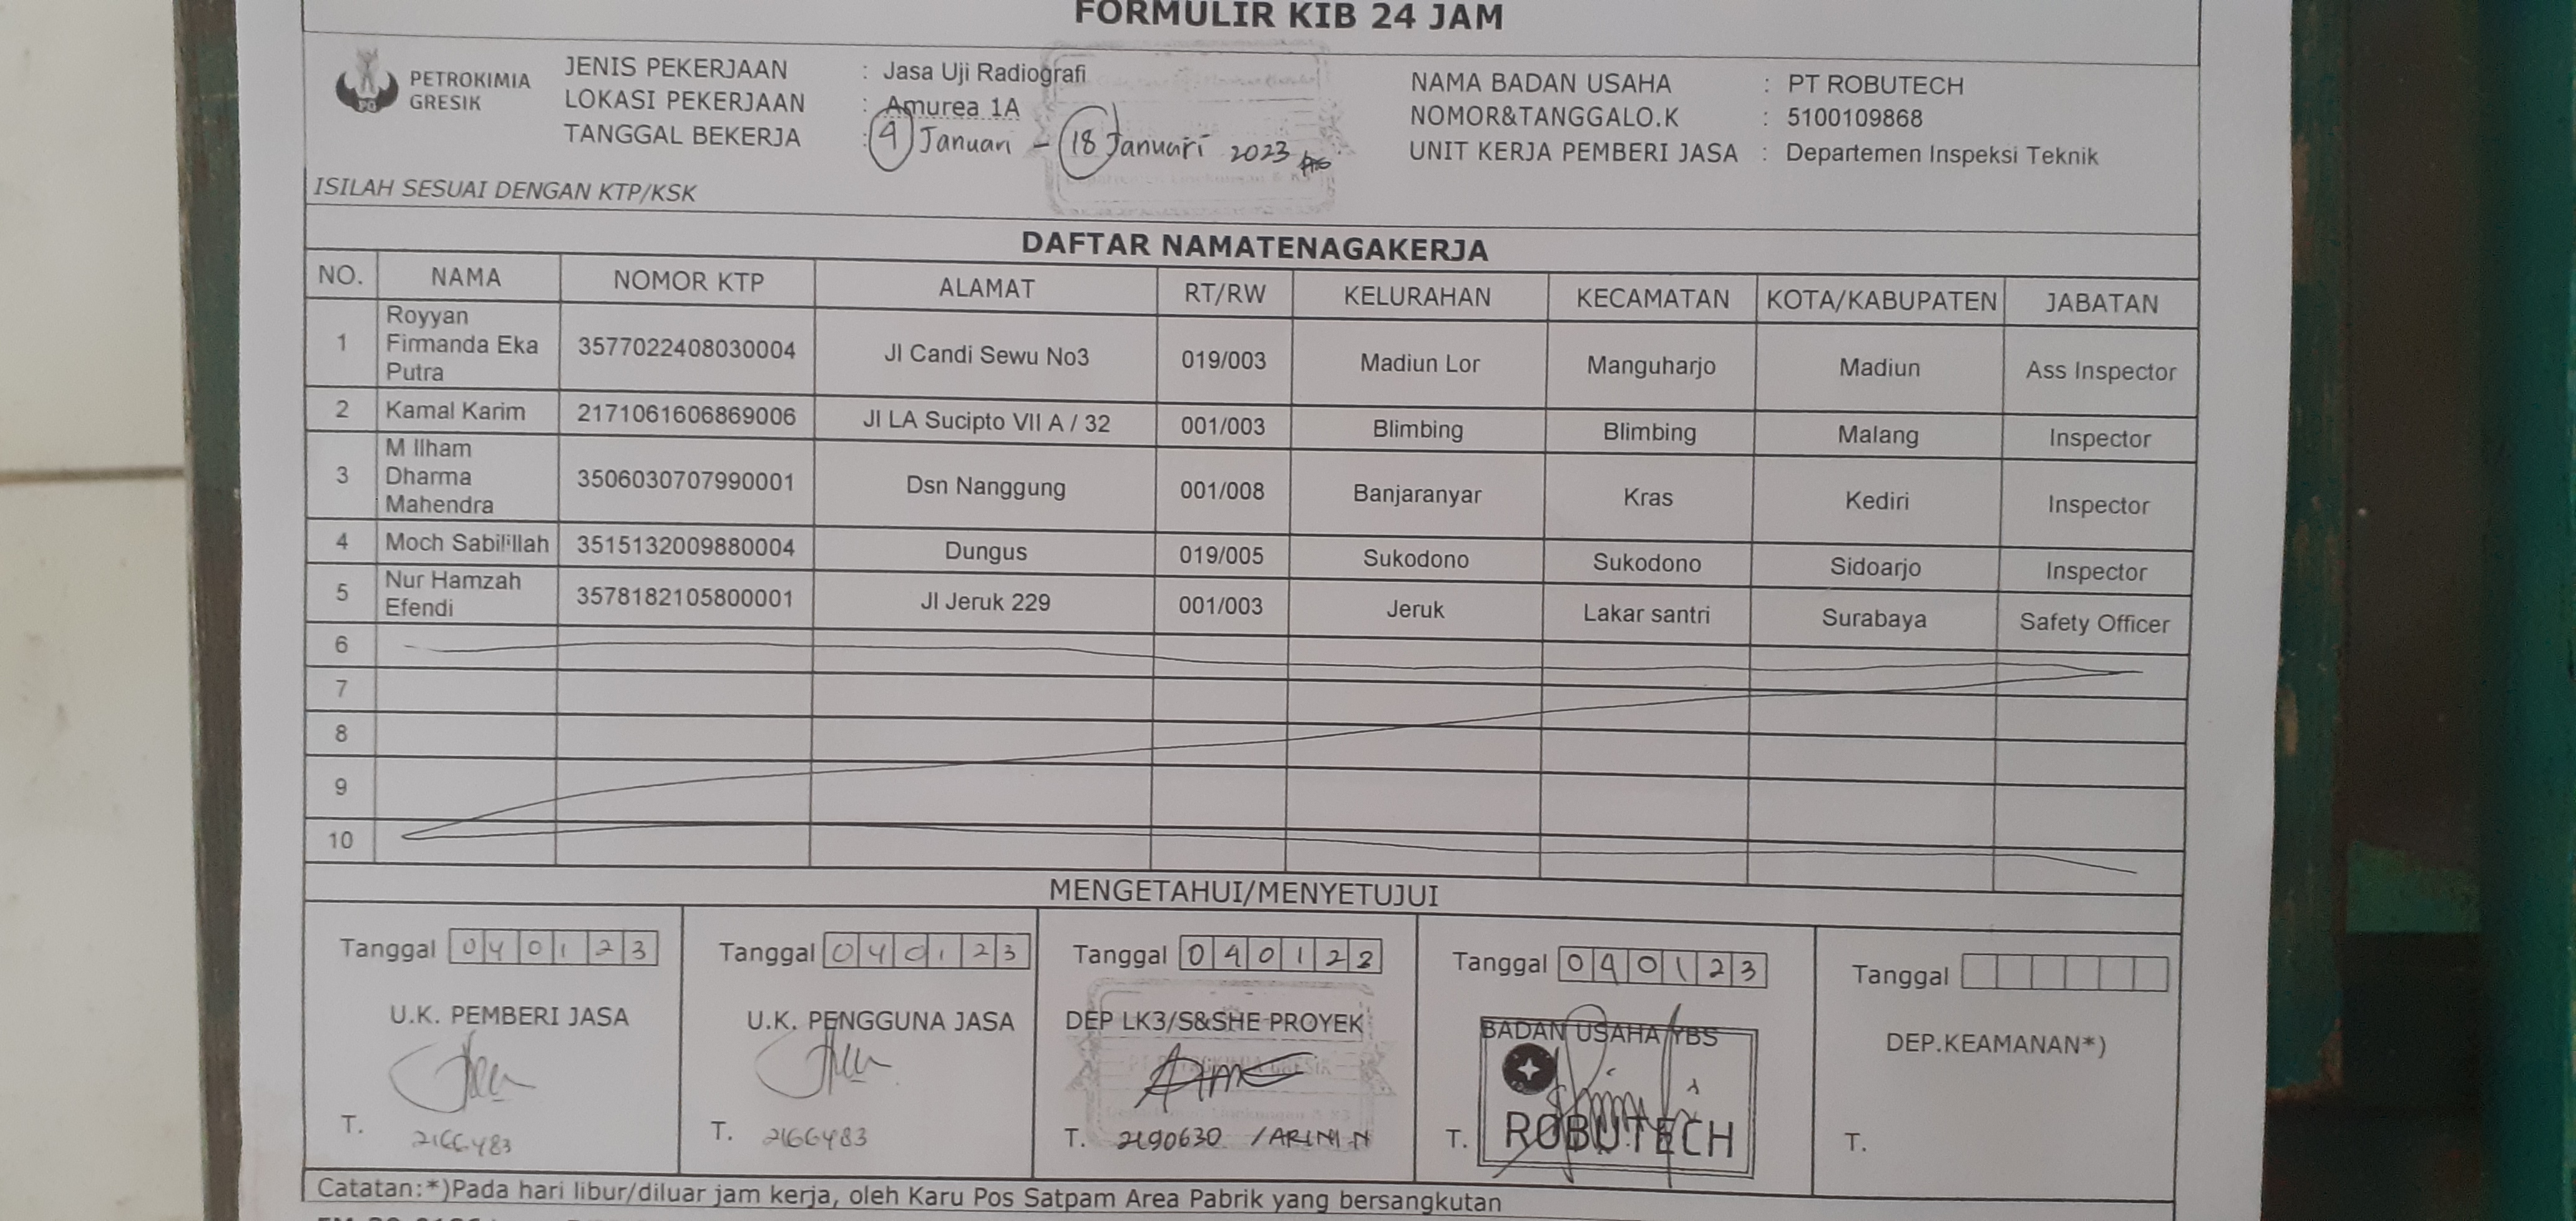 FORMULIR KIB 24 JAM
PETROKIMIA
GRESIK
JENIS PEKERJAAN : Jasa Uji Radiografi
LOKASI PEKERJAAN : Amurea 1A
TANGGAL BEKERJA : 4 Januari - 18 Januari 2023
NAMA BADAN USAHA : PT ROBUTECH
NOMOR&TANGGALO.K : 5100109868
UNIT KERJA PEMBERI JASA : Departemen Inspeksi Teknik
ISILAH SESUAI DENGAN KTP/KSK
DAFTAR NAMATENAGAKERJA
NO. NAMA NOMOR KTP ALAMAT RT/RW KELURAHAN KECAMATAN KOTA/KABUPATEN JABATAN
1 Royyan Firmanda Eka Putra 3577022408030004 Jl Candi Sewu No3 019/003 Madiun Lor Manguharjo Madiun Ass Inspector
2 Kamal Karim 2171061606869006 Jl LA Sucipto VII A / 32 001/003 Blimbing Blimbing Malang Inspector
3 M Ilham Dharma Mahendra 3506030707990001 Dsn Nanggung 001/008 Banjaranyar Kras Kediri Inspector
4 Moch Sabilillah 3515132009880004 Dungus 019/005 Sukodono Sukodono Sidoarjo Inspector
5 Nur Hamzah Efendi 3578182105800001 Jl Jeruk 229 001/003 Jeruk Lakar santri Surabaya Safety Officer
6
7
8
9
10
MENGETAHUI/MENYETUJUI
Tanggal 040123
U.K. PEMBERI JASA
T. 2166483
Tanggal 040123
U.K. PENGGUNA JASA
T. 2166483
Tanggal 040123
DEP LK3/S&SHE PROYEK
T. 2190630 /ARINI N
Tanggal 040123
BADAN USAHA YBS
T.
ROBUTECH
Tanggal
DEP.KEAMANAN*)
T.
Catatan:*)Pada hari libur/diluar jam kerja, oleh Karu Pos Satpam Area Pabrik yang bersangkutan